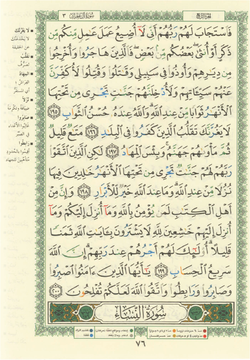 سورة آل عمران ٣
فَاسْتَجَابَ لَهُمْ رَبُّهُمْ أَنِّي لَا أُضِيعُ عَمَلَ عَامِلٍ مِنْكُمْ مِنْ
ذَكَرٍ أَوْ أُنْثَى بَعْضُكُمْ مِنْ بَعْضٍ فَالَّذِينَ هَاجَرُوا وَأُخْرِجُوا
مِنْ دِيَارِهِمْ وَأُوذُوا فِي سَبِيلِي وَقَاتَلُوا وَقُتِلُوا لَأُكَفِّرَنَّ
عَنْهُمْ سَيِّئَاتِهِمْ وَلَأُدْخِلَنَّهُمْ جَنَّاتٍ تَجْرِي مِنْ تَحْتِهَا
الْأَنْهَارُ ثَوَابًا مِنْ عِنْدِ اللَّهِ وَاللَّهُ عِنْدَهُ حُسْنُ الثَّوَابِ ١٩٥
لَا يَغُرَّنَّكَ تَقَلُّبُ الَّذِينَ كَفَرُوا فِي الْبِلَادِ ١٩٦ مَتَاعٌ قَلِيلٌ
ثُمَّ مَأْوَاهُمْ جَهَنَّمُ وَبِئْسَ الْمِهَادُ ١٩٧ لَكِنِ الَّذِينَ اتَّقَوْا
رَبَّهُمْ لَهُمْ جَنَّاتٌ تَجْرِي مِنْ تَحْتِهَا الْأَنْهَارُ خَالِدِينَ فِيهَا
نُزُلًا مِنْ عِنْدِ اللَّهِ وَمَا عِنْدَ اللَّهِ خَيْرٌ لِلْأَبْرَارِ ١٩٨ وَإِنَّ مِنْ
أَهْلِ الْكِتَابِ لَمَنْ يُؤْمِنُ بِاللَّهِ وَمَا أُنْزِلَ إِلَيْكُمْ وَمَا
أُنْزِلَ إِلَيْهِمْ خَاشِعِينَ لِلَّهِ لَا يَشْتَرُونَ بِآيَاتِ اللَّهِ ثَمَنًا
قَلِيلًا أُولَئِكَ لَهُمْ أَجْرُهُمْ عِنْدَ رَبِّهِمْ إِنَّ اللَّهَ
سَرِيعُ الْحِسَابِ ١٩٩ يَا أَيُّهَا الَّذِينَ آمَنُوا اصْبِرُوا
وَصَابِرُوا وَرَابِطُوا وَاتَّقُوا اللَّهَ لَعَلَّكُمْ تُفْلِحُونَ ٢٠٠
سُورَةُ النِّسَاءِ
٧٦